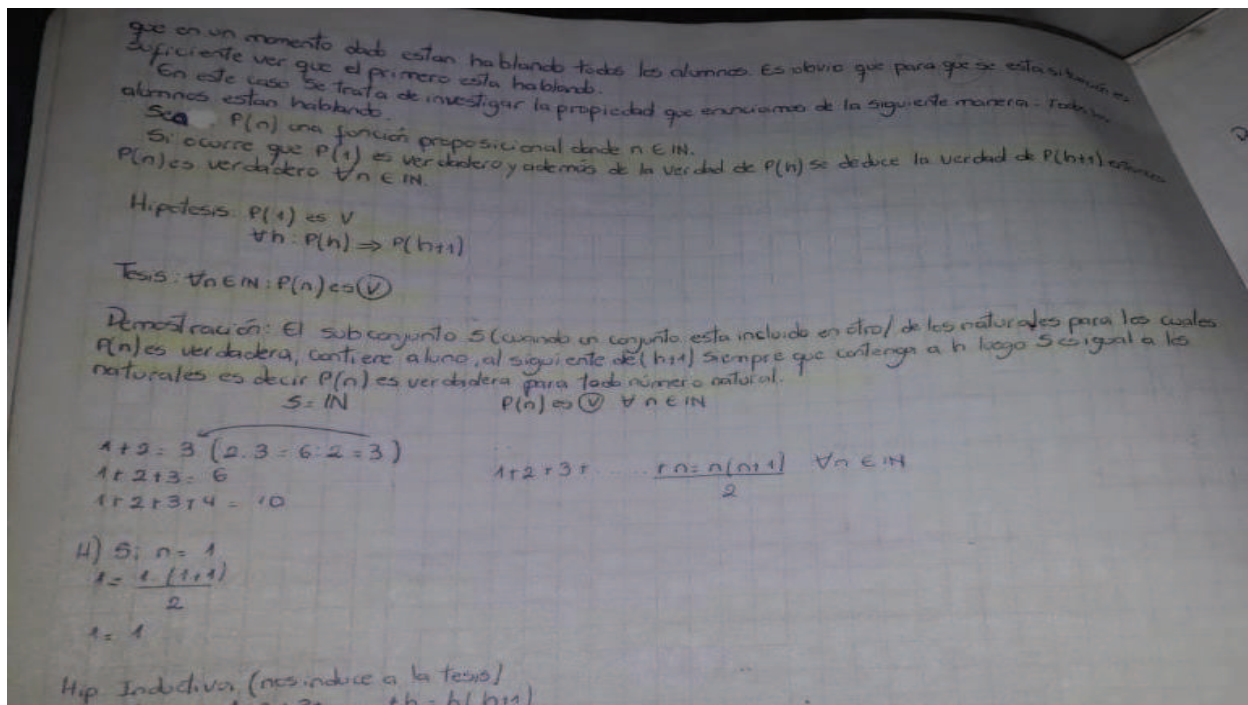 que en un momento dado estan hablando todos los alumnos. Es obvio que para que se esta situación es
suficiente ver que el primero esta hablando.
En este caso se trata de investigar la propiedad que enunciamos de la siguiente manera: Todos los
alumnos estan hablando.
Sea P(n) una función proposicional donde n ∈ IN.
Si ocurre que P(1) es verdadero y además de la verdad de P(h) se deduce la verdad de P(h+1) entonces
P(n) es verdadero ∀n ∈ IN.
Hipotesis: P(1) es V
∀h : P(h) ⇒ P(h+1)
Tesis: ∀n ∈ IN : P(n) es V
Demostración: El subconjunto S (cuando un conjunto esta incluido en otro) de los naturales para los cuales
P(n) es verdadera, contiene al uno, al siguiente de (h+1) siempre que contenga a h luego S es igual a los
naturales es decir P(n) es verdadera para todo número natural.
S = IN P(n) es V ∀ n ∈ IN
1+2 = 3 (2.3 = 6:2 = 3)
1+2+3 = 6 1+2+3+ ...... +n = n(n+1) ∀n ∈ IN
2
1+2+3+4 = 10
4) Si n = 1
1 = 1.(1+1)
2
1 = 1
Hip Inductiva (nos induce a la tesis)
+h = h(h+1)